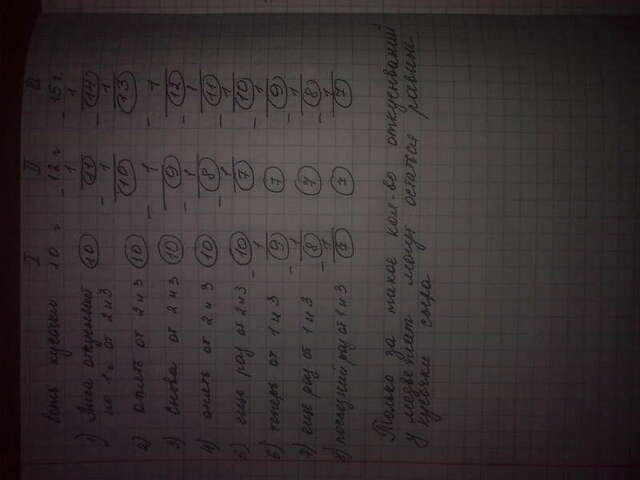 I II III
Есть кусочки 10 г - 12 г - 15 г.
1 1
1) Лиса откусывает (10) (11) (14)
по 1 г от 2 и 3 - 1 - 1
2) опять от 2 и 3 (10) (10) (13)
- 1 - 1
3) снова от 2 и 3 (10) (9) (12)
- 1 - 1
4) опять от 2 и 3 (10) (8) (11)
- 1 - 1
5) еще раз от 2 и 3 (10) (7) (10)
- 1 - 1
6) теперь от 1 и 3 (9) (7) (9)
- 1 - 1
7) еще раз от 1 и 3 (8) (7) (8)
- 1 - 1
8) последний раз от 1 и 3 (7) (7) (7)
Только за такое кол-во откусываний
у медвежат могут остаться равные
кусочки сыра